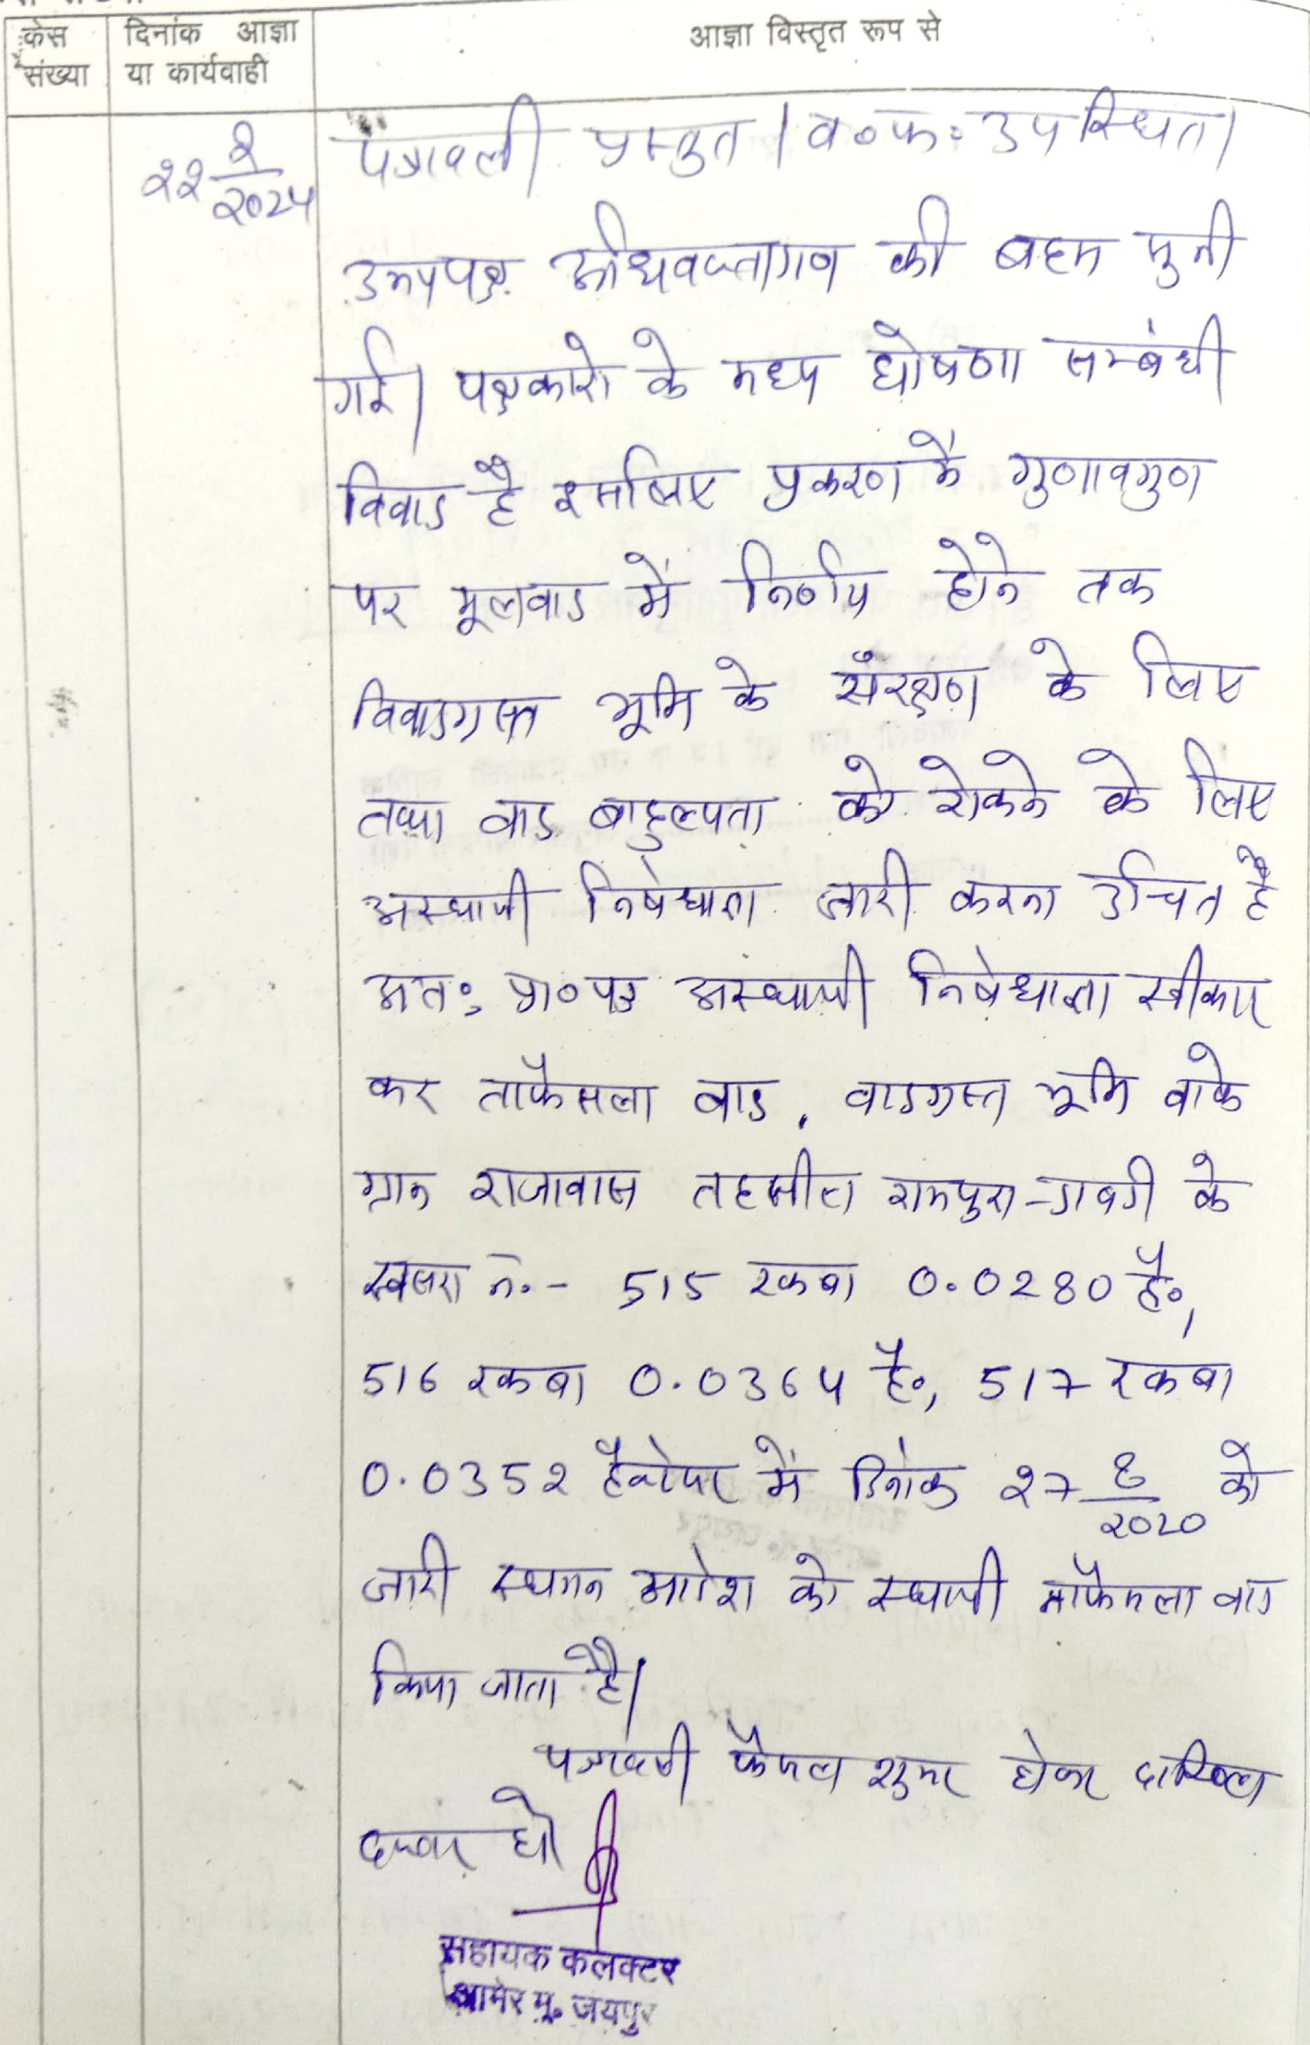 केस संख्या
दिनांक आज्ञा या कार्यवाही
आज्ञा विस्तृत रूप से
पत्रावली प्रस्तुत। व०फ० उपस्थित।
उभयपक्ष अधिवक्तागण की बहस सुनी
गई। पक्षकारो के मध्य घोषणा सम्बंधी
विवाद है इसलिए प्रकरण के गुणावगुण
पर मूलवाद में निर्णय होने तक
विवादग्रस्त भूमि के संरक्षण के लिए
तथा वाद बाहुल्यता को रोकने के लिए
अस्थायी निषेधाज्ञा जारी करना उचित है
अतः प्रा०पत्र अस्थायी निषेधाज्ञा स्वीकार
कर ताफैसला वाद, वादग्रस्त भूमि वाके
ग्राम राजावास तहसील रामपुरा-डाबडी के
खसरा नं.- 515 रकबा 0.0280 है०,
516 रकबा 0.0364 है०, 517 रकबा
0.0352 हैक्टेयर में दिनांक 27 8/2020 को
जारी स्थगन आदेश को स्थायी ताफैसला वाद
किया जाता है।
पत्रावली फैसल शुमार होकर दाखिल
दफ्तर हो
सहायक कलक्टर
आमेर मु. जयपुर